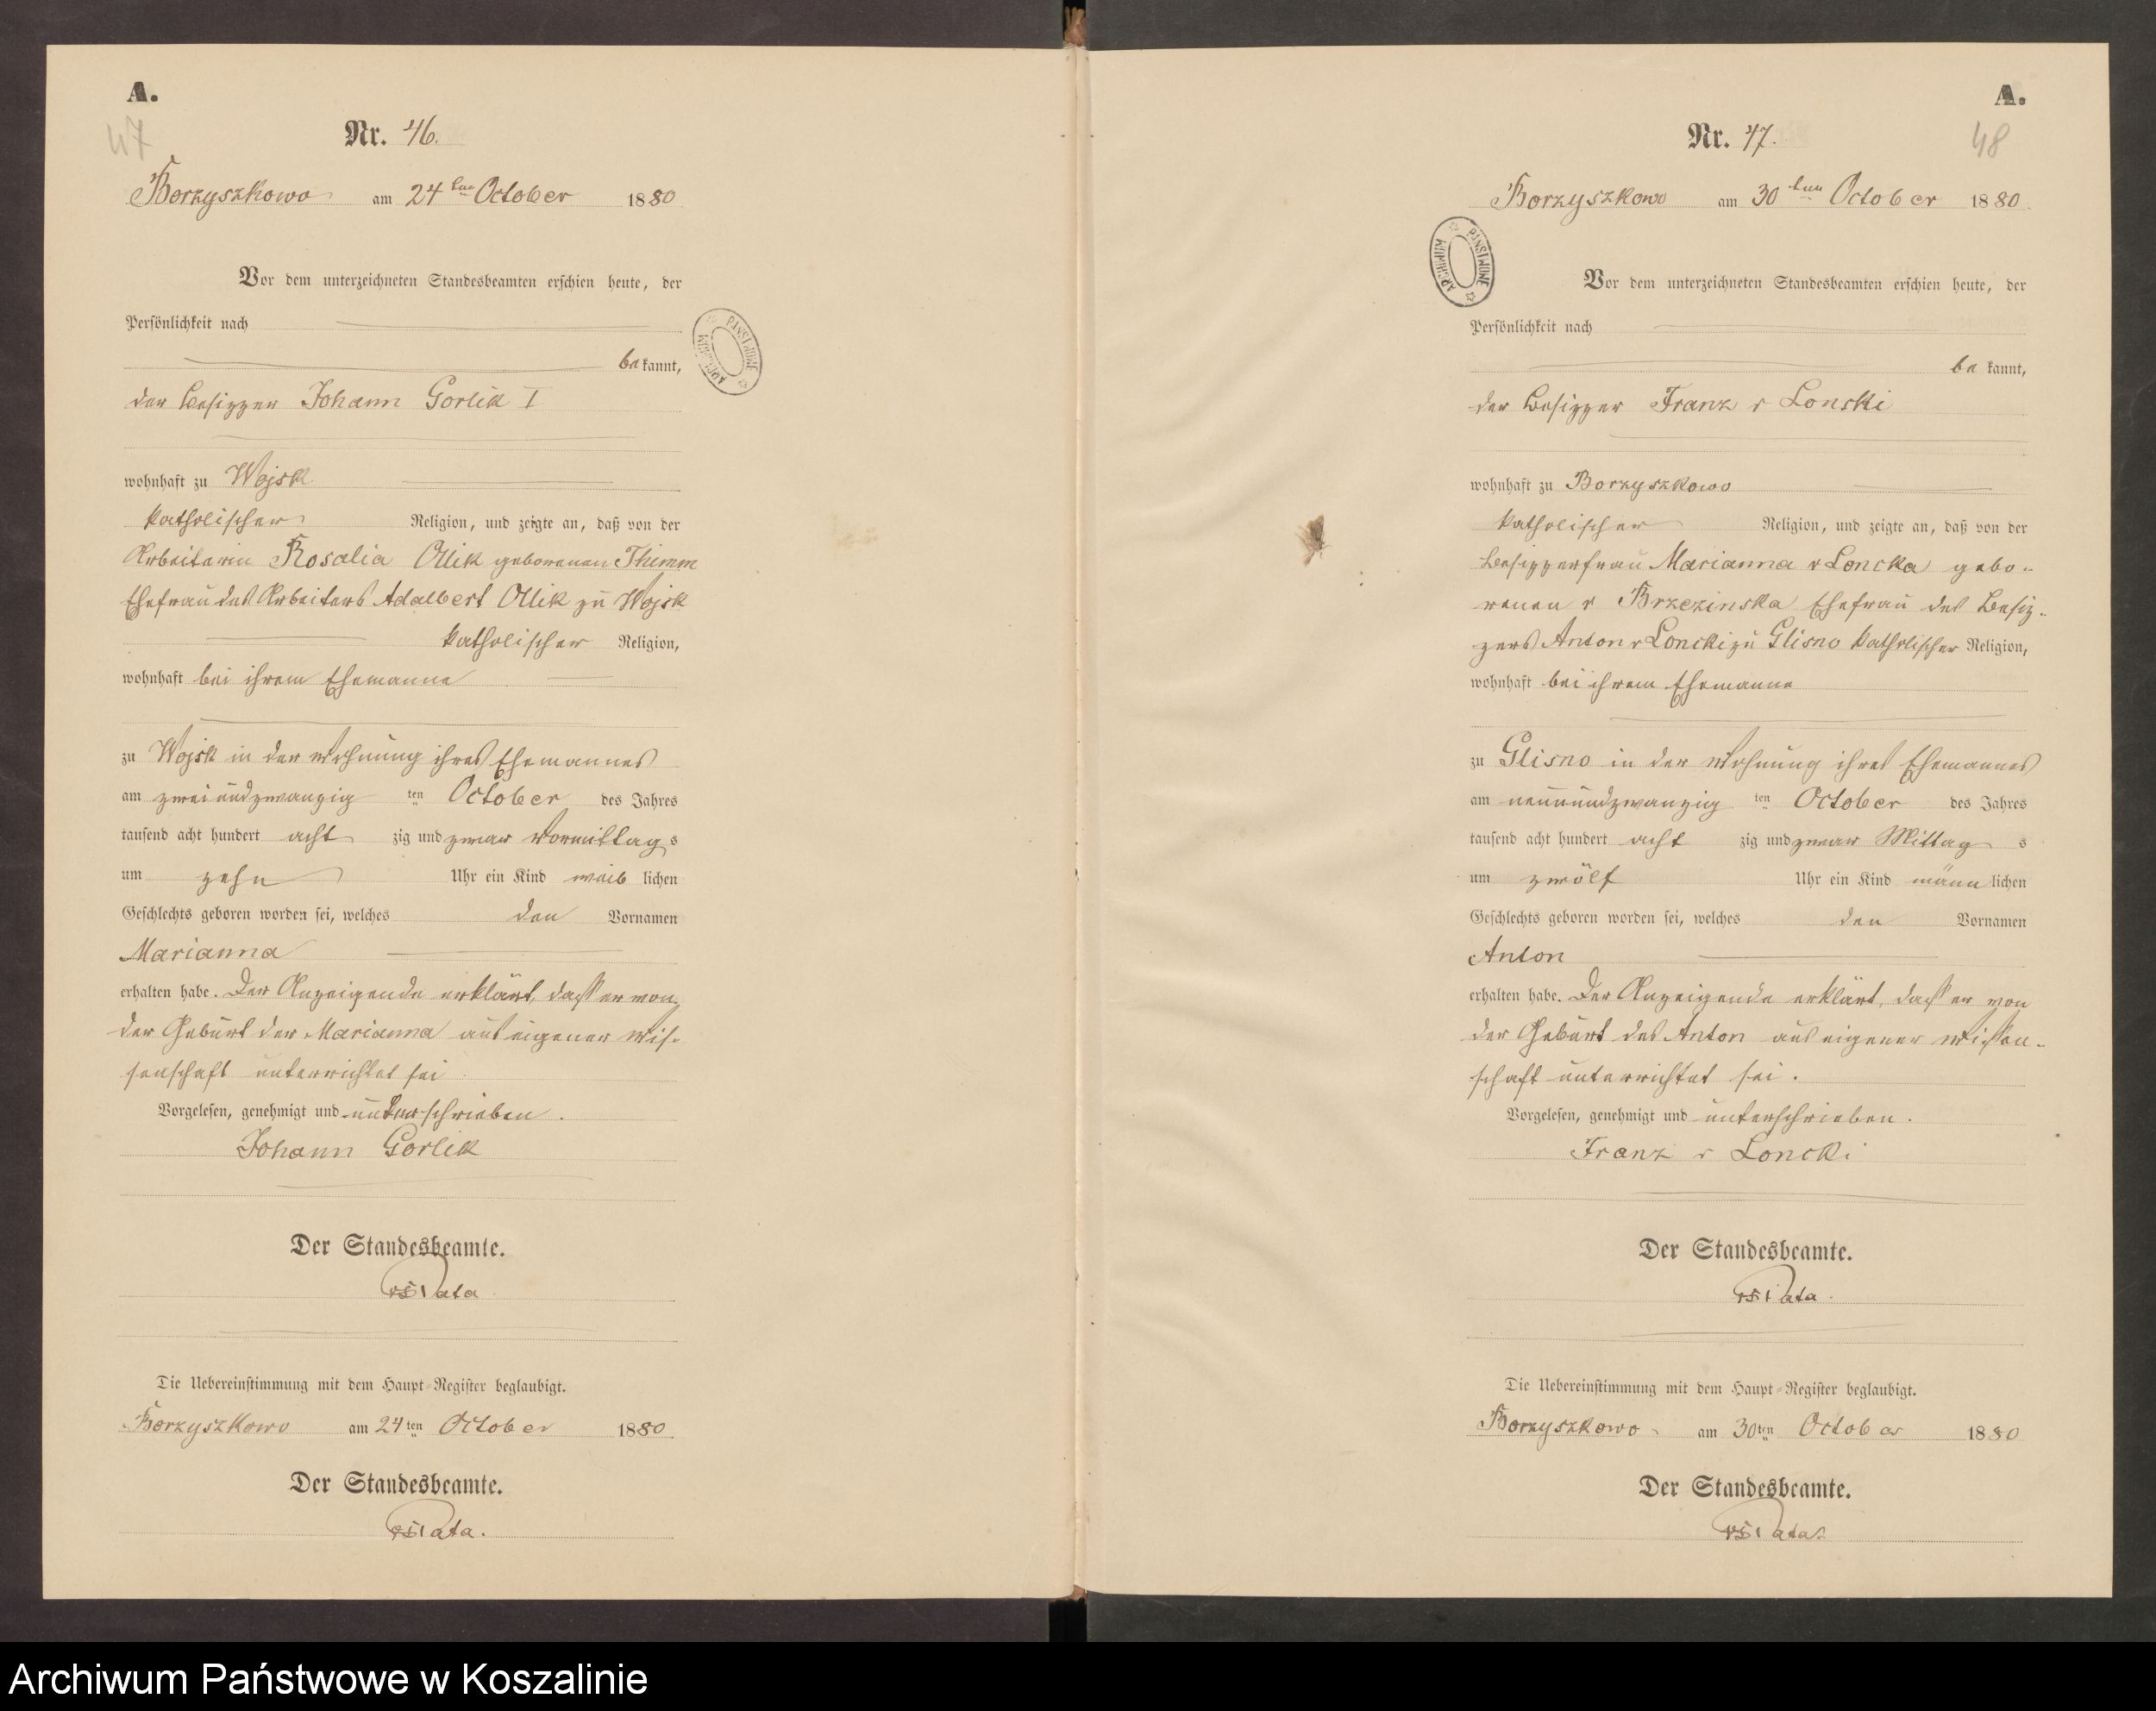 A.
47
Nr. 46.
Borzyszkowo am 24ten October 1880
Vor dem unterzeichneten Standesbeamten erschien heute, der
Persönlichkeit nach
be kannt,
der Besitzer Johann Gorlik I
wohnhaft zu Wojsk
katholischer Religion, und zeigte an, daß von der
Arbeiterin Rosalia Ollik geborenen Thimm
Ehefrau des Arbeiters Adalbert Ollik zu Wojsk
katholischer Religion,
wohnhaft bei ihrem Ehemanne
zu Wojsk in der Wohnung ihres Ehemannes
am zweiundzwanzig ten October des Jahres
tausend acht hundert acht zig und zwar Vormittag s
um zehn Uhr ein Kind weib lichen
Geschlechts geboren worden sei, welches den Vornamen
Marianna
erhalten habe. Der Anzeigende erklärt, dass er von
der Geburt der Marianna aus eigener Wis-
senschaft unterrichtet sei
Vorgelesen, genehmigt und unterschrieben.
Johann Gorlik
Der Standesbeamte.
Die Uebereinstimmung mit dem Haupt-Register beglaubigt.
Borzyszkowo am 24ten October 1880
Der Standesbeamte.
ARCHIWUM PAŃSTWOWE
A.
48
Nr. 47.
Borzyszkowo am 30ten October 1880
Vor dem unterzeichneten Standesbeamten erschien heute, der
Persönlichkeit nach
be kannt,
der Besitzer Franz v Lonski
wohnhaft zu Borzyszkowo
katholischer Religion, und zeigte an, daß von der
Besitzerfrau Marianna v Loncka gebo-
renen v Brzezinska Ehefrau des Besit-
zers Anton v Loncki zu Glisno katholischer Religion,
wohnhaft bei ihrem Ehemanne
zu Glisno in der Wohnung ihres Ehemannes
am neunundzwanzig ten October des Jahres
tausend acht hundert acht zig und zwar Mittag s
um zwölf Uhr ein Kind männ lichen
Geschlechts geboren worden sei, welches den Vornamen
Anton
erhalten habe. Der Anzeigende erklärt, dass er von
der Geburt des Anton aus eigener Wissen-
schaft unterrichtet sei.
Vorgelesen, genehmigt und unterschrieben.
Franz v Loncki
Der Standesbeamte.
Die Uebereinstimmung mit dem Haupt-Register beglaubigt.
Borzyszkowo am 30ten October 1880
Der Standesbeamte.
ARCHIWUM PAŃSTWOWE
Archiwum Państwowe w Koszalinie